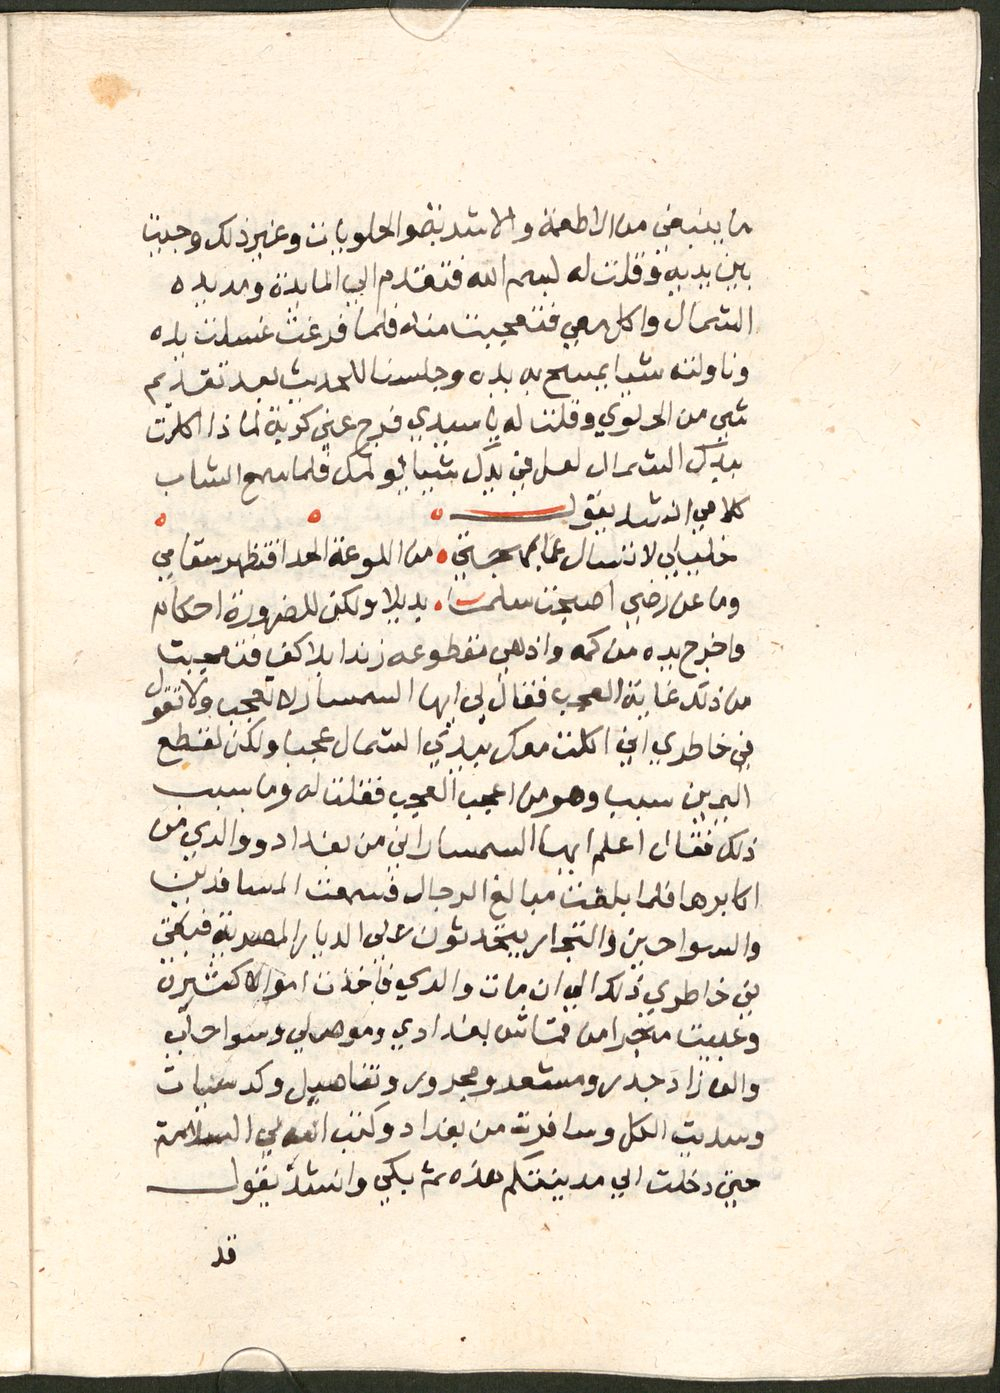 ما ينبغي من الاطعمة والاشربة والحلويات وغير ذلك وجيت
بين يديه وقلت له بسم الله فتقدم الي المايدة ومد يده
الشمال واكل معي فتعجبت منه فلما فرغت غسلت يده
وناولته شيا يمسح به يده وجلسنا للحديث بعد تقديم
شي من الحلوي وقلت له يا سيدي فرج عني كربة لماذا اكلت
بيدك الشمال لعل في يدك شيا يولمك فلما سمع الشاب
كلامي انشد يقول
خليلي لا تسال عما بمهجتي من اللوعة الحدا فتظهر سقامي
وما عن رضي اصبحت سلمت بديلا ولكن للضرورة احكام
واخرج يده من كمه واذ هي مقطوعه زندا بلا كف فتعجبت
من ذلك غاية العجب فقال لي ايها السمسار لا تعجب ولا تقول
في خاطرك اني اكلت معك بيدي الشمال عجبا ولكن لقطع
اليدين سبب وهو من اعجب العجب فقلت له وما سبب
ذلك فقال اعلم ايها السمسار اني من بغداد ووالدي من
اكابرها فلما بلغت مبالغ الرجال فسمعت المسافرين
والسواحين والتجار يتحدثون علي الديار المصرية فبقي
في خاطري ذلك الي ان مات والدي فاخذت اموالا كثيرة
وعبيت متجرا من قماش بغدادي وموصلي وسواحلي
وتفاصيل
وشديت الكل وسافرت من بغداد وكتب الله لي السلامة
حتي دخلت الي مدينتكم هذه ثم بكي وانشد يقول
قد